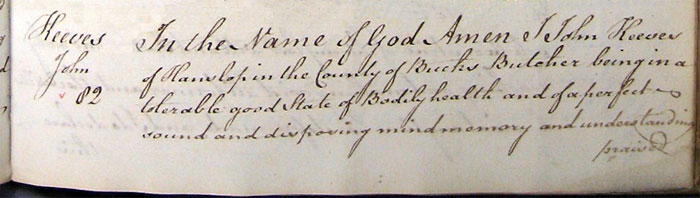 Reeves
John
82
In the Name of God Amen I John Reeves
of Hanslop in the County of Bucks Butcher being in a
tolerable good State of Bodily health and of a perfect
sound and disposing mind memory and understanding
praised